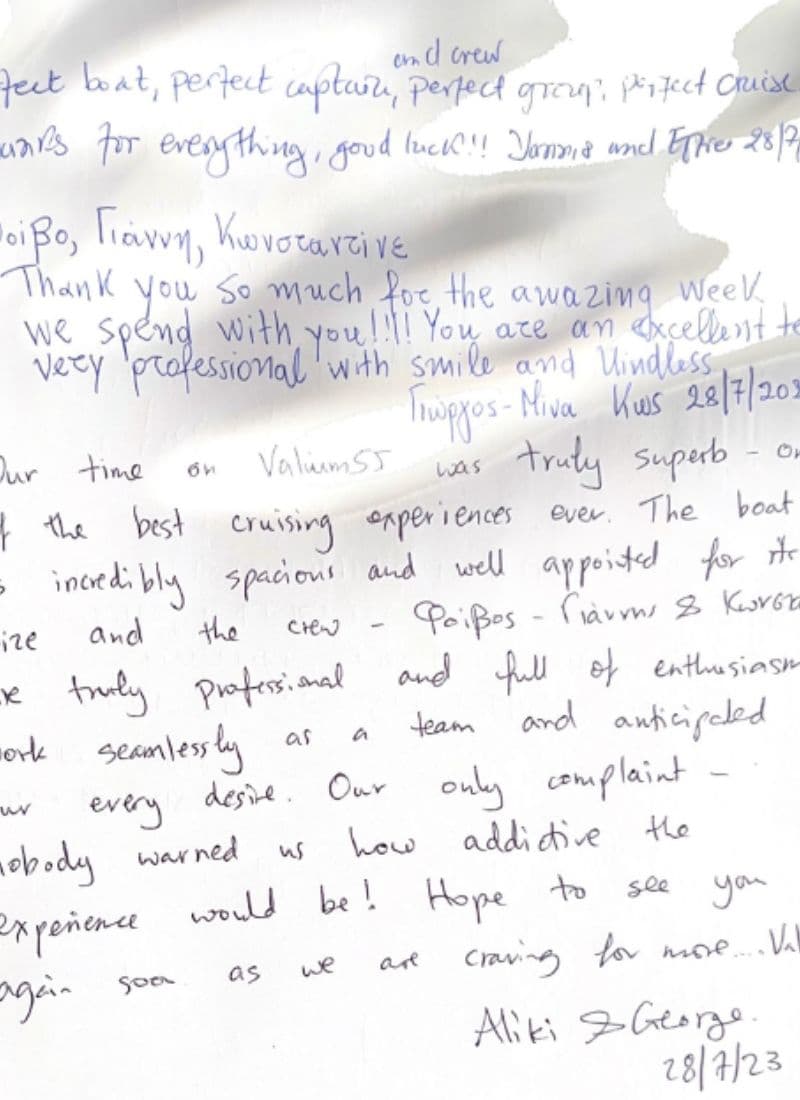 and crew
fect boat, perfect captain, perfect group, perfect cruise
anks for everything, good luck!! Yannis and 28/7
οιβο, Γιάννη, Κωνσταντίνε
Thank you so much for the awazing week
we spend with you!!!! You are an excellent te
very professional with smile and kindless
Γιώργος-Μίνα Κως 28/7/202
Our time on Valium55 was truly superb - on
f the best cruising experiences ever. The boat
s incredibly spacious and well appointed for its
ize and the crew - Φοίβος - Γιάννης & Κωνστα
re truly professional and full of enthusiasm
ork seamlessly as a team and anticipated
ur every desire. Our only complaint -
nobody warned us how addictive the
experience would be! Hope to see you
again soon as we are craving for more....Val
Aliki & George.
28/7/23